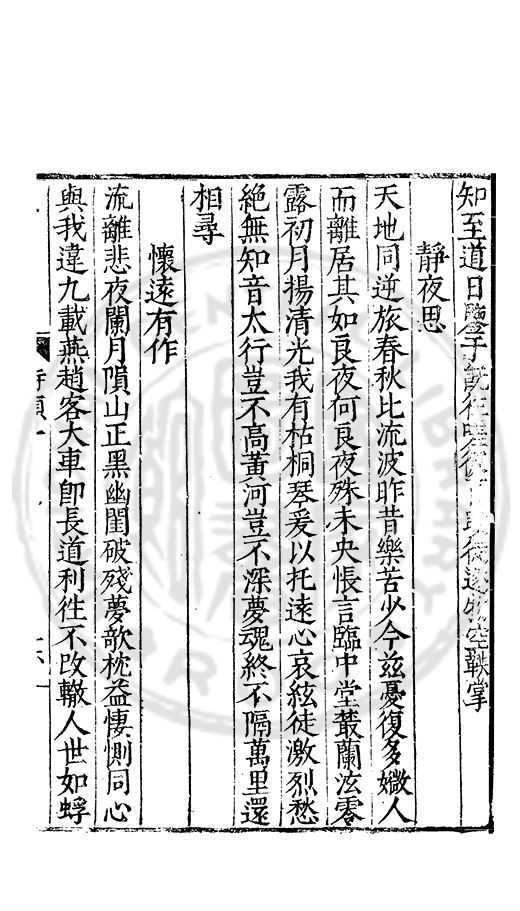 知至道日鑒于既往嗟後徒遂空鞅掌
靜夜思
天地同逆旅春秋比流波昨昔樂苦少今茲憂復多媺人
而離居其如良夜何良夜殊未央悵言臨中堂叢蘭泫零
露初月揚清光我有枯桐琴爰以托遠心哀絃徒激烈愁
絕無知音太行豈不高黃河豈不深夢魂終不隔萬里還
相尋
懷遠有作
流離悲夜闌月隕山正黑幽閨破殘夢欹枕益悽惻同心
與我違九載燕趙客大車卽長道利徃不改轍人世如蜉